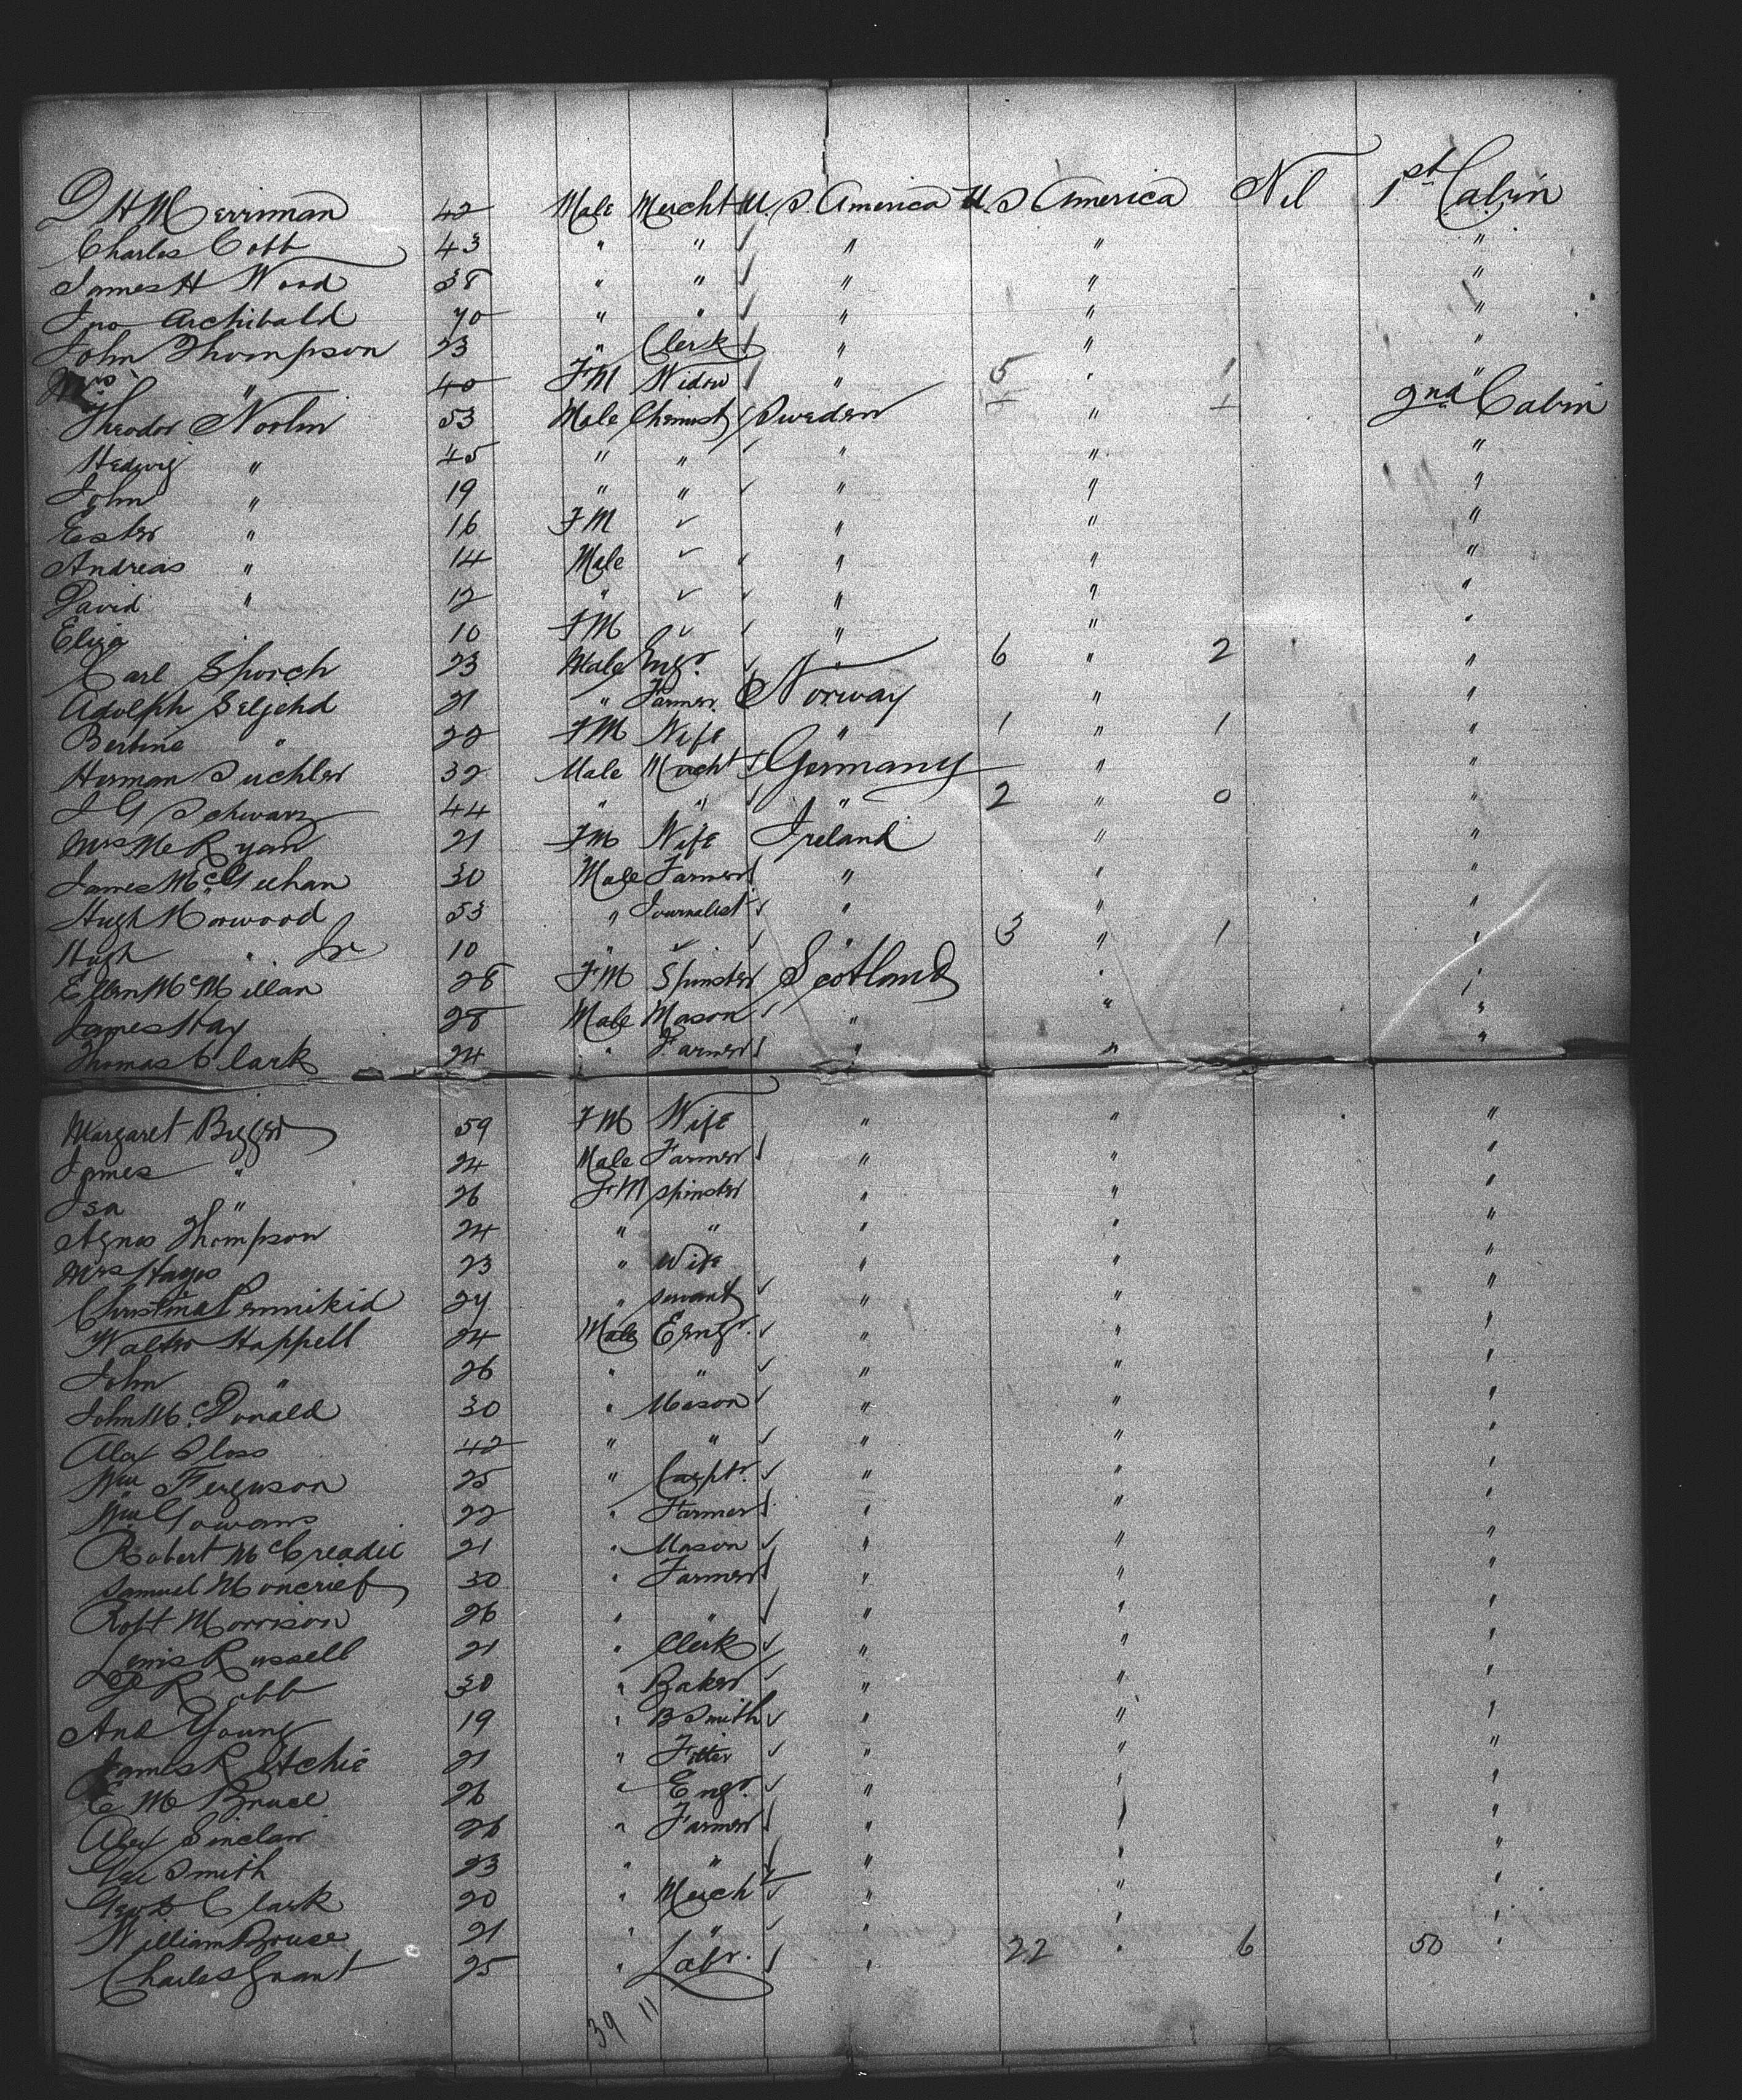 D H Merriman 42 Male Mercht U. S. America U. S America Nil 1st Cabin
Charles Cobb 43 " " " " "
James H Wood 38 " " " " "
Jno Archibald 70 " " " " "
John Thompson 23 " Clerk " " "
Mrs " 40 FM Widow " 5 " 1 "
Theodor Norlin 53 Male Chemist Sweden " 2nd Cabin
Hedwig " 45 " " " " "
John " 19 " " " " "
Ester " 16 FM " " "
Andreas " 14 Male " " "
David " 12 " " " "
Eliza 10 FM " " "
Carl 23 Male Engr. " 6 " 2 "
Adolph Seljehd 21 " Farmer Norway " "
Bertine " 22 FM Wife " 1 " 1 "
Herman Suchler 32 Male Mercht Germany " "
J G Schwarz 44 " " " 2 " 0 "
Mrs M Ryan 21 FM Wife Ireland " "
James McGeehan 30 Male Farmer " " "
Hugh Norwood 53 " Journalist " " "
Hugh " Jr 10 " " 3 " 1 "
Ellen McMillan 28 FM Spinster Scotland " "
James Hay 28 Male Mason " " "
Thomas Clark 24 " Farmer " " "
Margaret Bigger 59 FM Wife " " "
James " 24 Male Farmer " " "
Isa " 26 FM Spinster " " "
Agnes Thompson 24 " " " " "
Mrs Hayes 23 " Wife " " "
Christina 24 " servant " " "
Walter Happell 24 Male Engr. " " "
John " 26 " " " " "
John McDonald 30 " Mason " " "
Alex 42 " " " " "
Wm Ferguson 25 " Carptr. " " "
Wm Gowans 22 " Farmer " " "
Robert McCreadie 21 " Mason " " "
Samuel Moncrief 30 " Farmer " " "
Robt Morrison 26 " " " " "
Lewis Russell 21 " Clerk " " "
R Cobb 30 " Baker " " "
And Young 19 " B Smith " " "
James Ritchie 21 " Fitter " " "
E M Bruce 26 " Engr. " " "
Alex Sinclair 26 " Farmer " " "
Geo Smith 23 " " " " "
Clark 20 " Mercht " " "
William Bruce 21 " " " " "
Charles Grant 25 " Labr. " 22 " 6 50 "
39 11